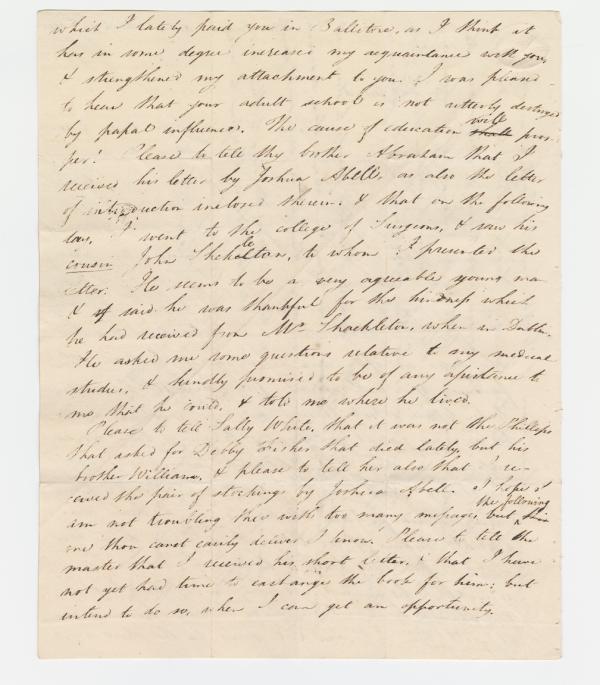 which I lately paid you in Ballitore, as I think it
has in some degree increased my acquaintance with you,
& strengthened my attachment to you. I was pleased
to hear that your adult school is not utterly destroyed
by papal influence. The cause of education will shall pros-
per! Please to tell thy brother Abraham that I
received his letter by Joshua Abell, as also the letter
of introduction inclosed therein: & that on the following
day, I went to the college of Surgeons, & saw his
cousin John Shekelton, to whom I presented the
letter. He seems to be a very agreeable young man
& said he was thankful for the kindness which
he had received from Mrs. Shackleton, when in Dublin.
He asked me some questions relative to my medical
studies, & kindly promised to be of any assistance to
me that he could, & told me where he lived.
Please to tell Sally White, that it was not the Phillips
that asked for Debby Fisher that died lately, but his
brother William, & please to tell her also that I re-
ceived the pair of stockings by Joshua Abell. I hope I
am not troubling thee with too many messages, but the following
me thou canst easily deliver I know. Please to tell the
master that I received his short letter, & that I have
not yet had time to exchange the book for him: but
intend to do so, when I can get an opportunity.